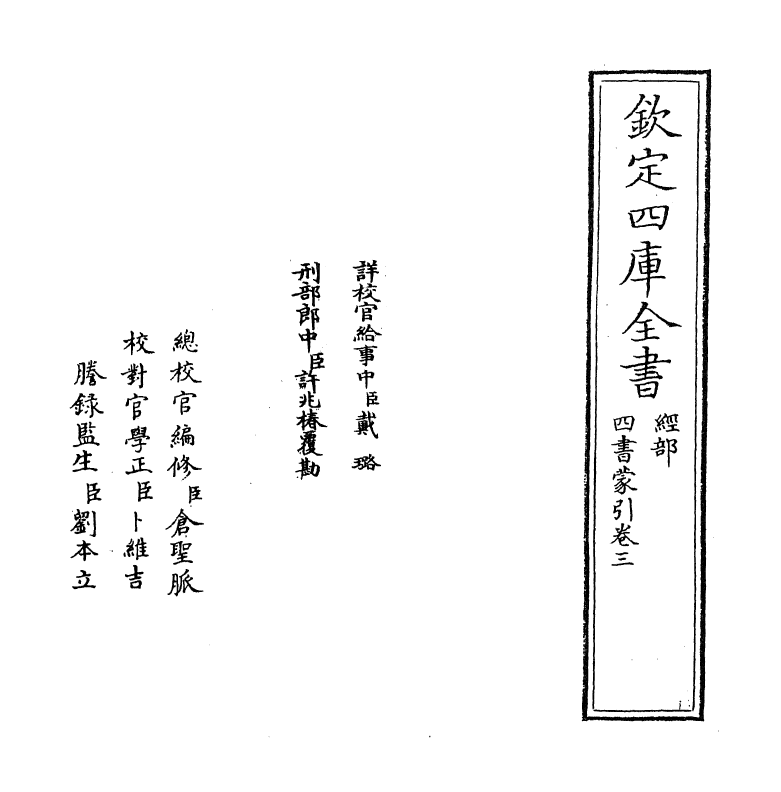 欽定四庫全書
經部
四書蒙引卷三
詳校官給事中臣戴璐
刑部郎中臣許兆椿覆勘
總校官編修臣倉聖脈
校對官學正臣卜維吉
謄錄監生臣劉本立